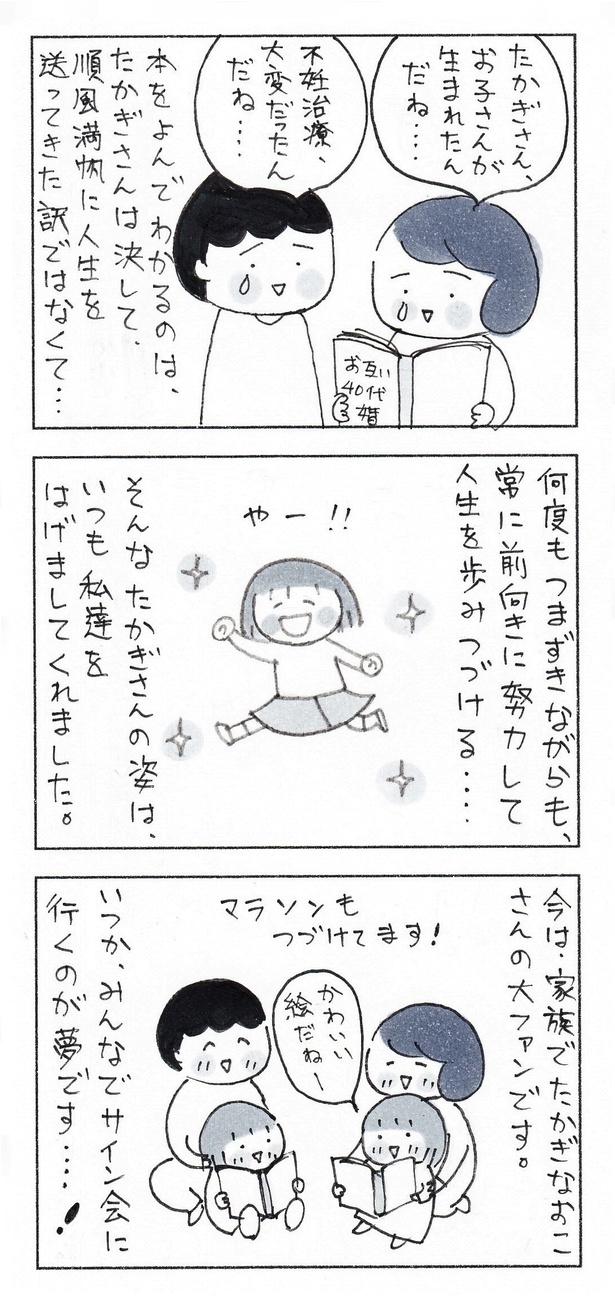 たかぎさん、
お子さんが
生まれたん
だね…
不妊治療、
大変だったん
だね…
お互い
40代
婚
本をよんでわかるのは、
たかぎさんは決して、
順風満帆に人生を
送ってきた訳ではなくて…
何度もつまずきながらも、
常に前向きに努力して
人生を歩みつづける…
やー!!
そんなたかぎさんの姿は、
いつも私達を
はげましてくれました。
今は、家族でたかぎなおこ
さんの大ファンです。
マラソンも
つづけてます!
かわいい
絵だねー
いつか、みんなでサイン会に
行くのが夢です…!